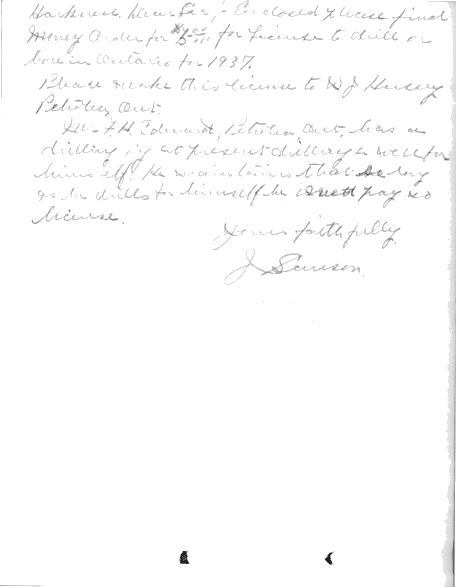 Harkness. Dear Sir,:- Enclosed please find
Money Order for $5.00 for License to drill or
bore in Ontario for 1937.
Please make this license to W J Hussey
Petrolia, Ont.
Mr. F. H. Edward, Petrolia Ont, has a
drilling rig at present drilling a well for
himself. He maintains that so long
as he drills for himself he need pay no
license.
Yours faithfully
J Samson.